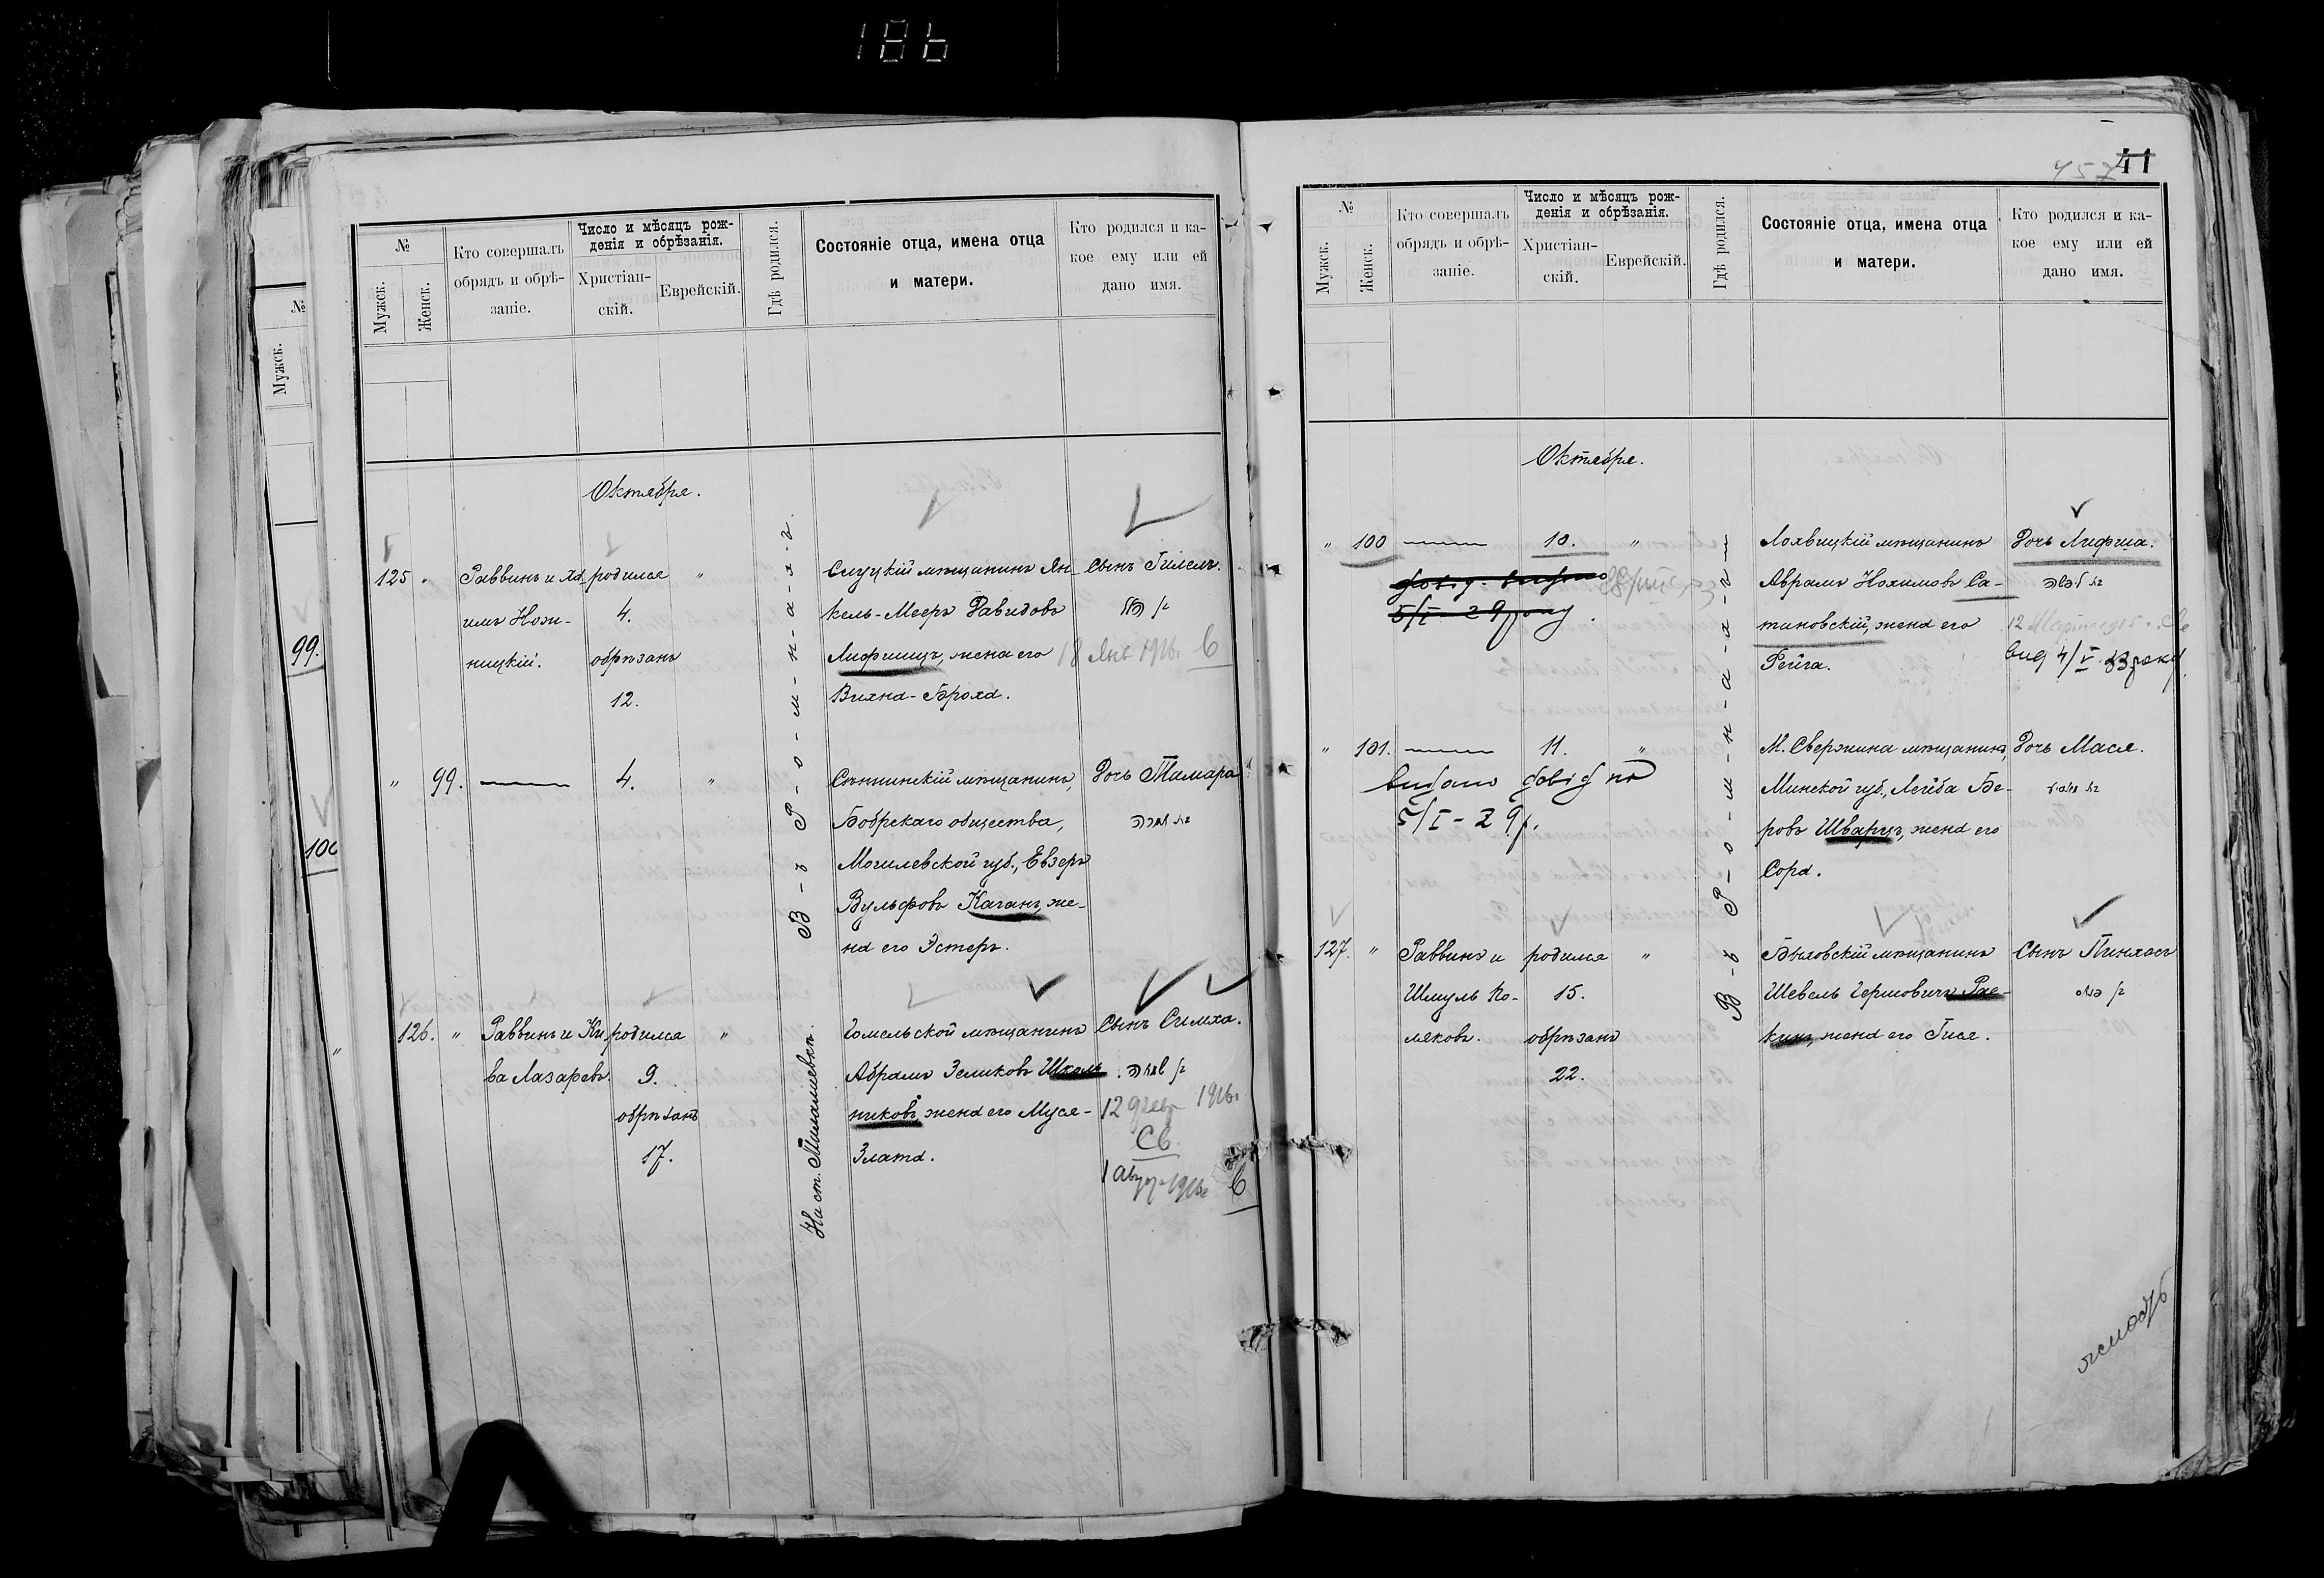 186
№
Мужск.
99.
100
№
Мужск.
Женск.
Кто совершалъ
обрядъ и обрѣ-
заніе.
Число и мѣсяцъ рож-
денія и обрѣзанія.
Христіан-
скій.
Еврейскій.
Гдѣ родился.
Состояніе отца, имена отца
и матери.
Кто родился и ка-
кое ему или ей
дано имя.
Октября.
125
Раввинъ и Ха-
имъ Нож-
ницкій.
родился
4.
обрѣзанъ
12.
"
В-ъ Р-о-м-н-а-х-ъ.
Слуцкій мѣщанинъ Ян-
кель-Мееръ Давидовъ
Лифшицъ, жена его
Вихна-Броха.
Сынъ Гилель.
18 Янв 1916
" 99.
4.
"
Сѣннинскій мѣщанинъ,
Бобрскаго общества,
Могилевской губ., Евзеръ
Вульфовъ Каганъ, же-
на его Эстеръ.
Дочь Тамара
126. "
Раввинъ и Ки-
ва Лазаревъ.
родился
9.
обрѣзанъ
17.
"
На ст.
Гомельской мѣщанинъ
Абрамъ Зеликовъ Школь-
никовъ, жена его Муся-
Злата.
Сынъ Симха.
12 1916
Св
1 Авг 1916
41
457
№
Мужск.
Женск.
Кто совершалъ
обрядъ и обрѣ-
заніе.
Число и мѣсяцъ рож-
денія и обрѣзанія.
Христіан-
скій.
Еврейскій.
Гдѣ родился.
Состояніе отца, имена отца
и матери.
Кто родился и ка-
кое ему или ей
дано имя.
Октября.
" 100
10.
"
довід. видано
5/I-29 року
В-ъ Р-о-м-н-а-х-ъ
Лохвицкій мѣщанинъ
Аврамъ Нохимовъ Са-
тановскій, жена его
Рейза.
Дочь Лифша.
вид 4/V 33 року
" 101.
11.
"
видано довідка
5/I-29 р.
М. Свержина мѣщанинъ,
Минской губ., Лейба Бе-
ровъ Шварцъ, жена его
Сора.
Дочь Мася.
127. "
Раввинъ и
Шмуль По-
ляковъ.
родился
15.
обрѣзанъ
22.
"
Быховскій мѣщанинъ
Шевель Гершовичъ Рас-
кинъ, жена его Гися.
Сынъ Пинхасъ